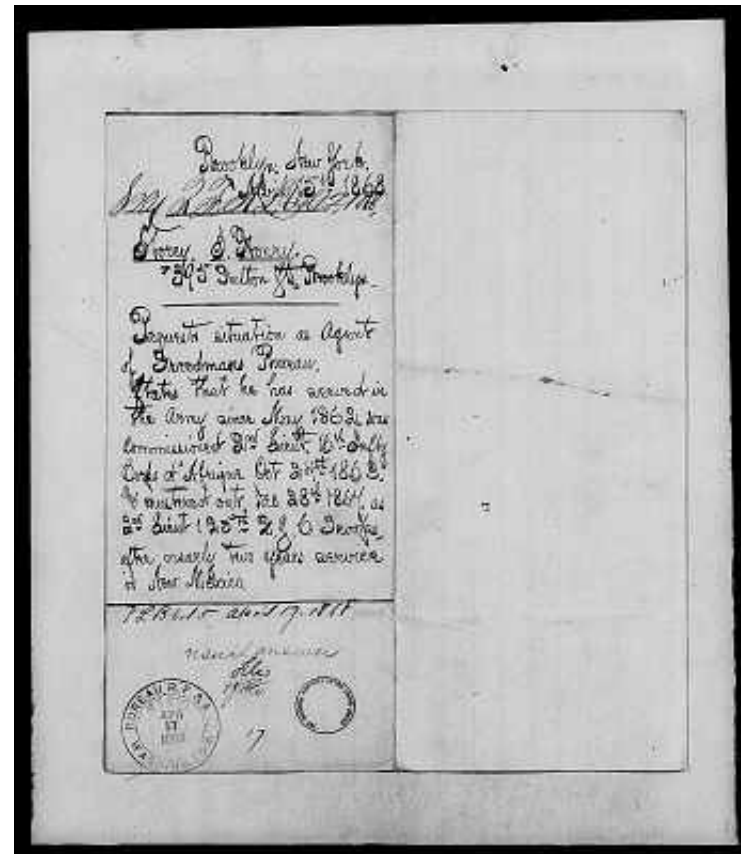 Brooklyn, New York,
April 15th 1868
Torrey, S. Harry.
#395 Fulton St, Brooklyn.
Requests situation as Agent
of Freedmans Bureau.
States that he has served in
the Army since May 1862, was
Commissioned 2nd Lieut. 6th Infty
Corps d'Afrique Oct 31st 1863,
& mustered out, Dec 23rd 1867, as
2nd Lieut 125th U.S.C Troops,
after nearly two years service
in New Mexico
April 17. 1868
usual answer
BUREAU R. F.
APR
17
17